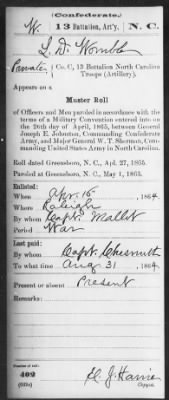 (Confederate.)
W. 13 Battalion, Art'y. N. C.
L. D. Womble
Private, Co. C, 13 Battalion North Carolina
Troops (Artillery).
Appears on a
Muster Roll
of Officers and Men paroled in accordance with the
terms of a Military Convention entered into on
the 26th day of April, 1865, between General
Joseph E. Johnston, Commanding Confederate
Army, and Major General W. T. Sherman, Com-
manding United States Army in North Carolina.
Roll dated Greensboro, N. C., Apl. 27, 1865.
Paroled at Greensboro, N. C., May 1, 1865.
Enlisted:
When Apr. 16, 1864
Where Raleigh
By whom Capt. Mallet
Period War
Last paid:
By whom Capt. Chesnutt
To what time Aug 31, 1864.
Present or absent Present
Remarks:
Number of roll:
402
Copyist.